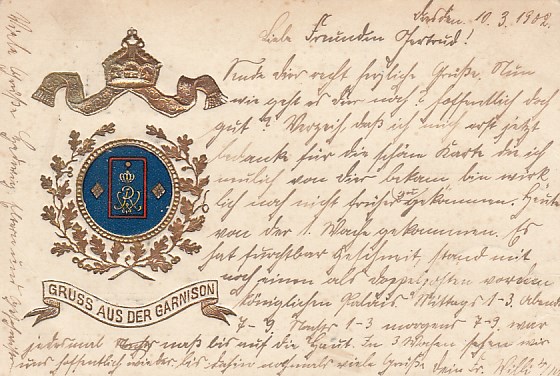 Dresden. 10.3.1902.
Liebe Freundin Gertrud!
Sende dir recht herzliche Grüße. Nun
wie geht es dir noch? hoffentlich doch
gut? Verzeih, daß ich mich erst jetzt
bedanke für die schöne Karte die ich
neulich von dir bekam bin wirk
ich noch nicht früher zu gekommen. Heute
von der 1. Wache gekommen. Es
hat furchtbar geschneit, stand mit
noch einem als Doppelposten vor dem
königlichen Palais. Mittags 1-3. Abends
7-9. Nachts 1-3 morgens 7-9. war
jedesmal naß bis auf die Haut. In 3 Wochen sehen wir
uns hoffentlich wieder bis dahin nochmals viele Grüße Dein Fr. Willi
GRUSS AUS DER GARNISON
Viele Grüße